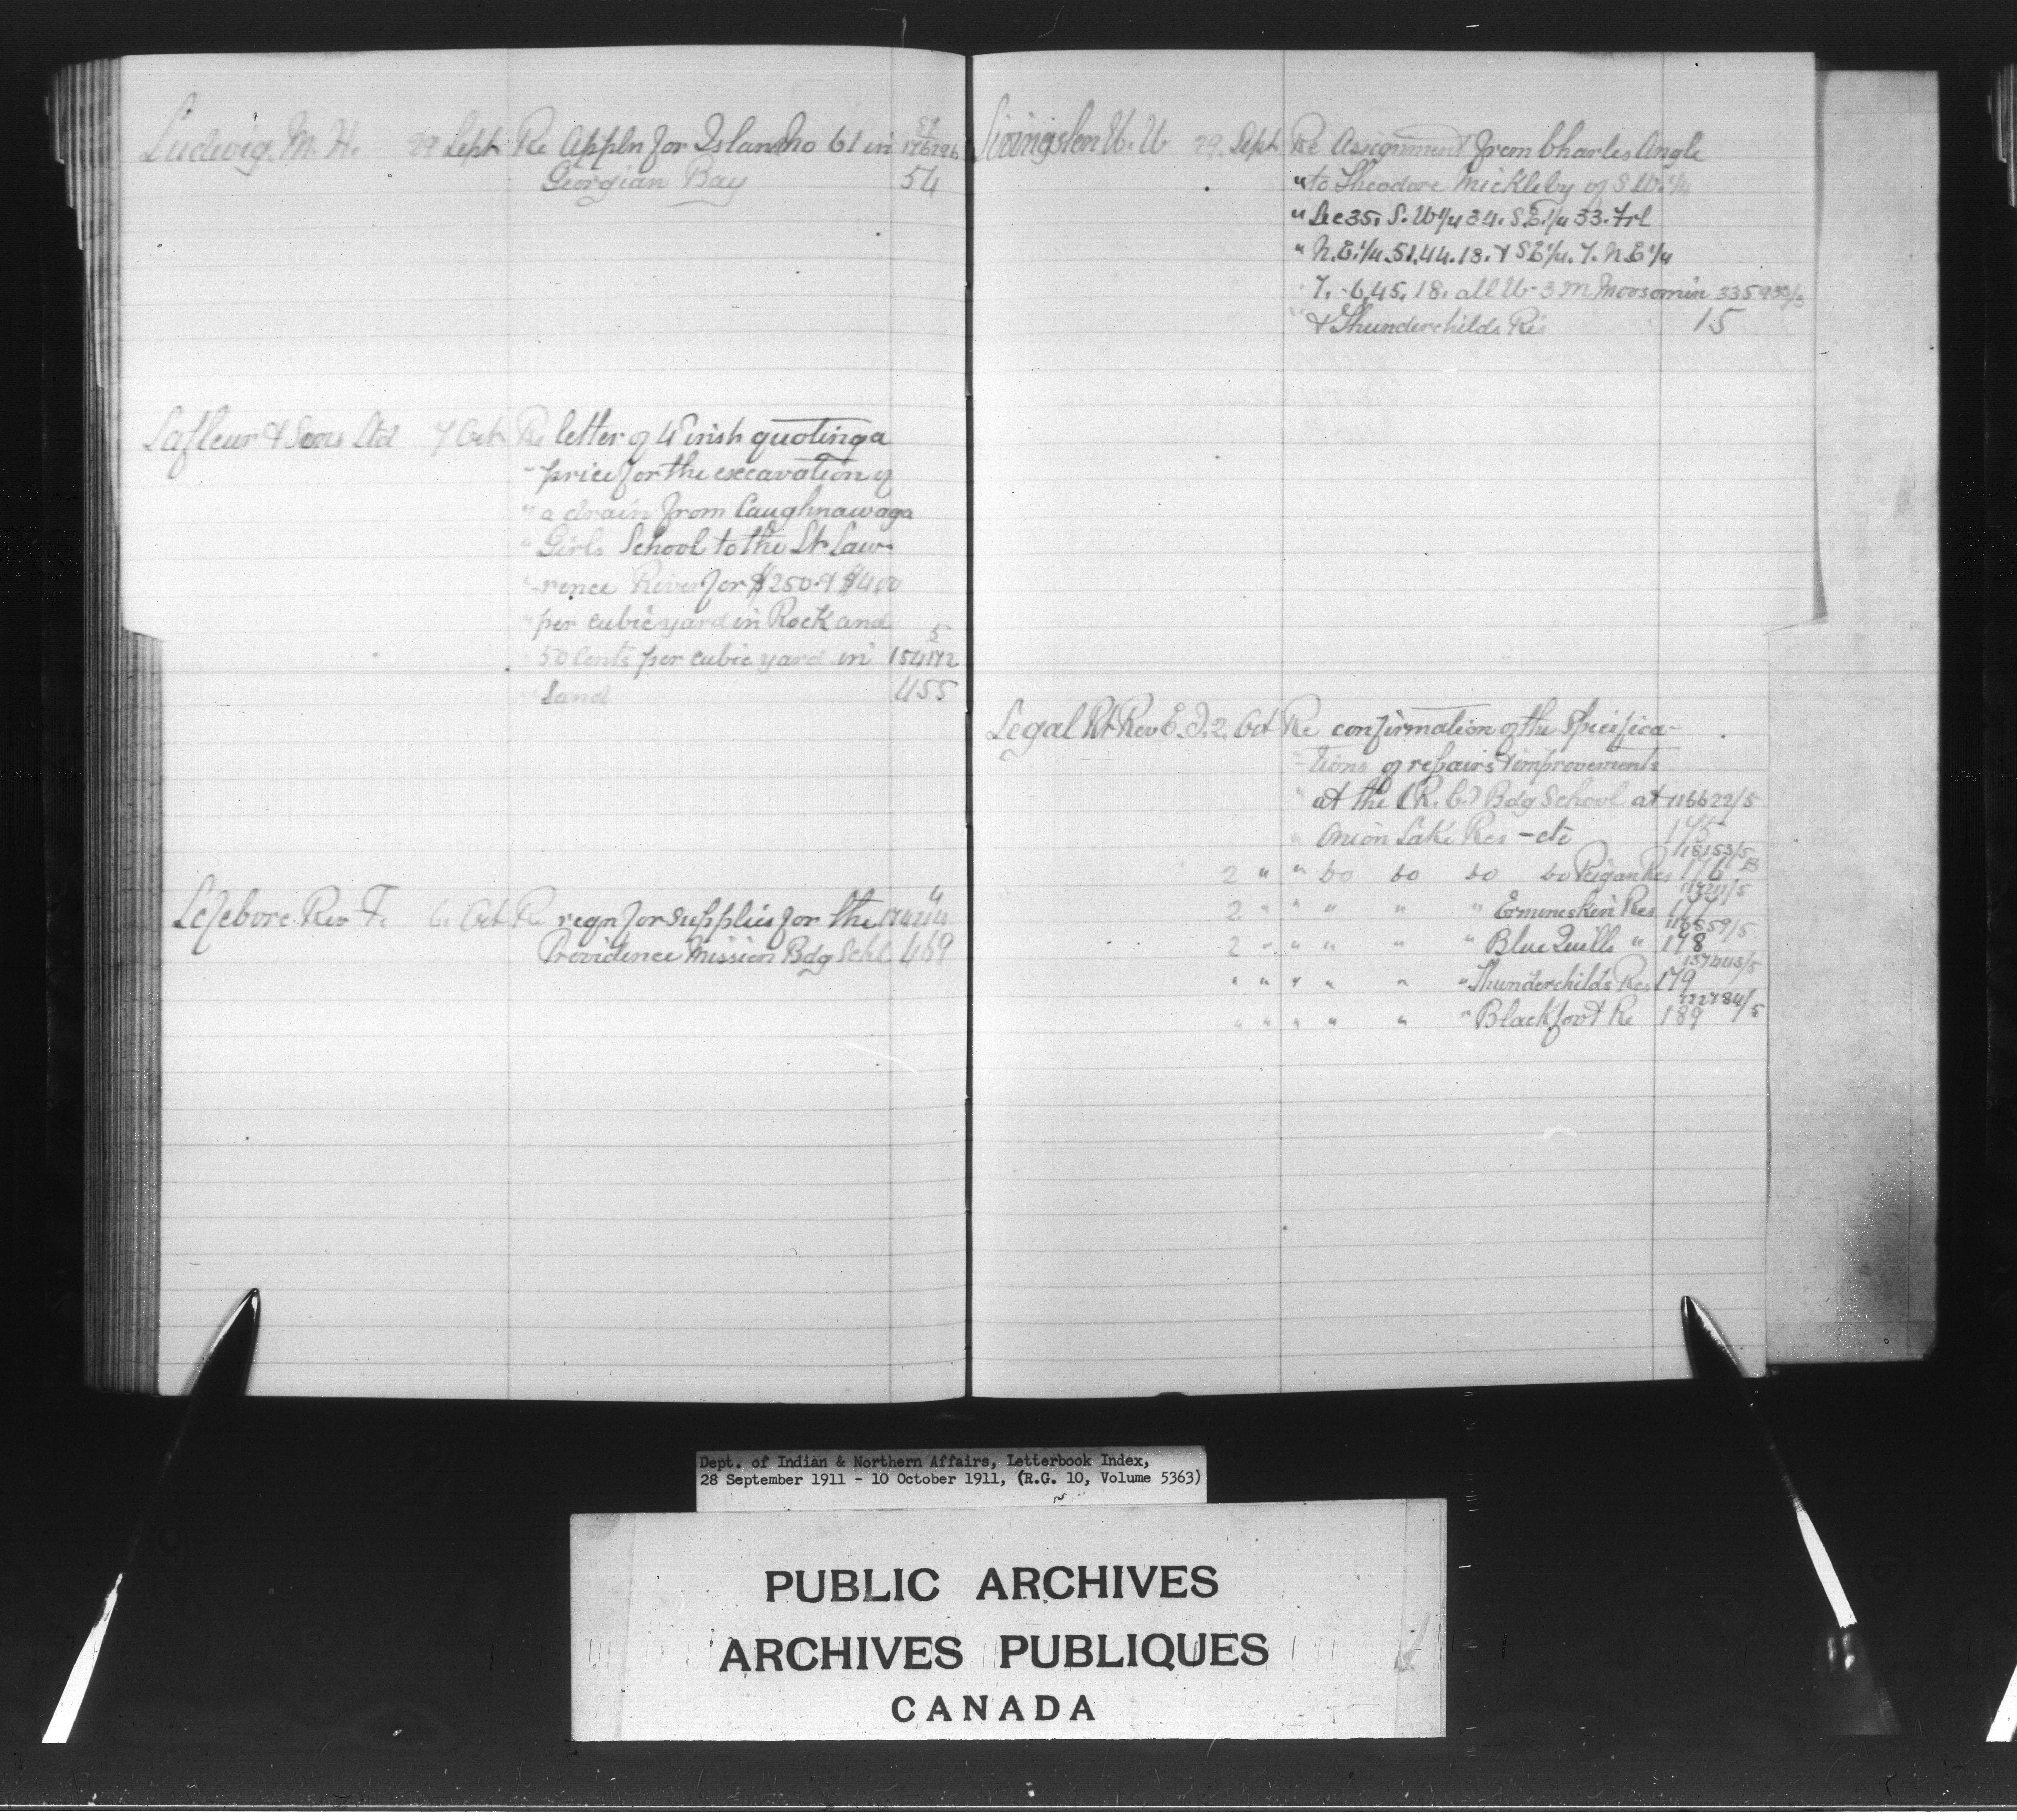 Ludwig. M. H. 29 Sept Re Appln for Island no 61 in 176296
Georgian Bay 54
Lafleur & Sons Ltd 7 Oct Re letter of 4th inst quoting a
" price for the excavation of
" a drain from Caughnawaga
" Girls School to the St Law-
" rence River for $250 & $400
" per cubic yard in Rock and 5
" 50 Cents per cubic yard in 154172
" Sand 455
Lefebvre. Rev F. 6. Oct Re reqn for supplies for the
Providence Mission Bdg Schl 469
Livingston 29. Sept Re Assignment from Charles Angle
" to Theodore Mickleby of S.W. 1/4
" Sec 35. S.W 1/4 34. S.E. 1/4 33. Frl
" N.E. 1/4. 51.44.18. & SE 1/4. 7. N.E 1/4
7. -6,45, 18. all W-3 M Moosomin
" & Thunderchilds Res 15
Legal Rt Rev E. J. 2. Oct Re confirmation of the Specifica-
" -tions of repairs & improvements
" at the (R. C.) Bdg School at 116622/5
" Onion Lake Res - etc 175
118153/5
2 " " Do Do Do Do Peigan Res 176 B
2 " " " " " Ermineskin Res 177
2 " " " " " Blue Quills " 178
137443/5
" " " " " " Thunderchilds Res 179
122784/5
" " " " " " Blackfoot Re 189
Dept. of Indian & Northern Affairs, Letterbook Index,
28 September 1911 - 10 October 1911, (R.G. 10, Volume 5363)
PUBLIC ARCHIVES
ARCHIVES PUBLIQUES
CANADA